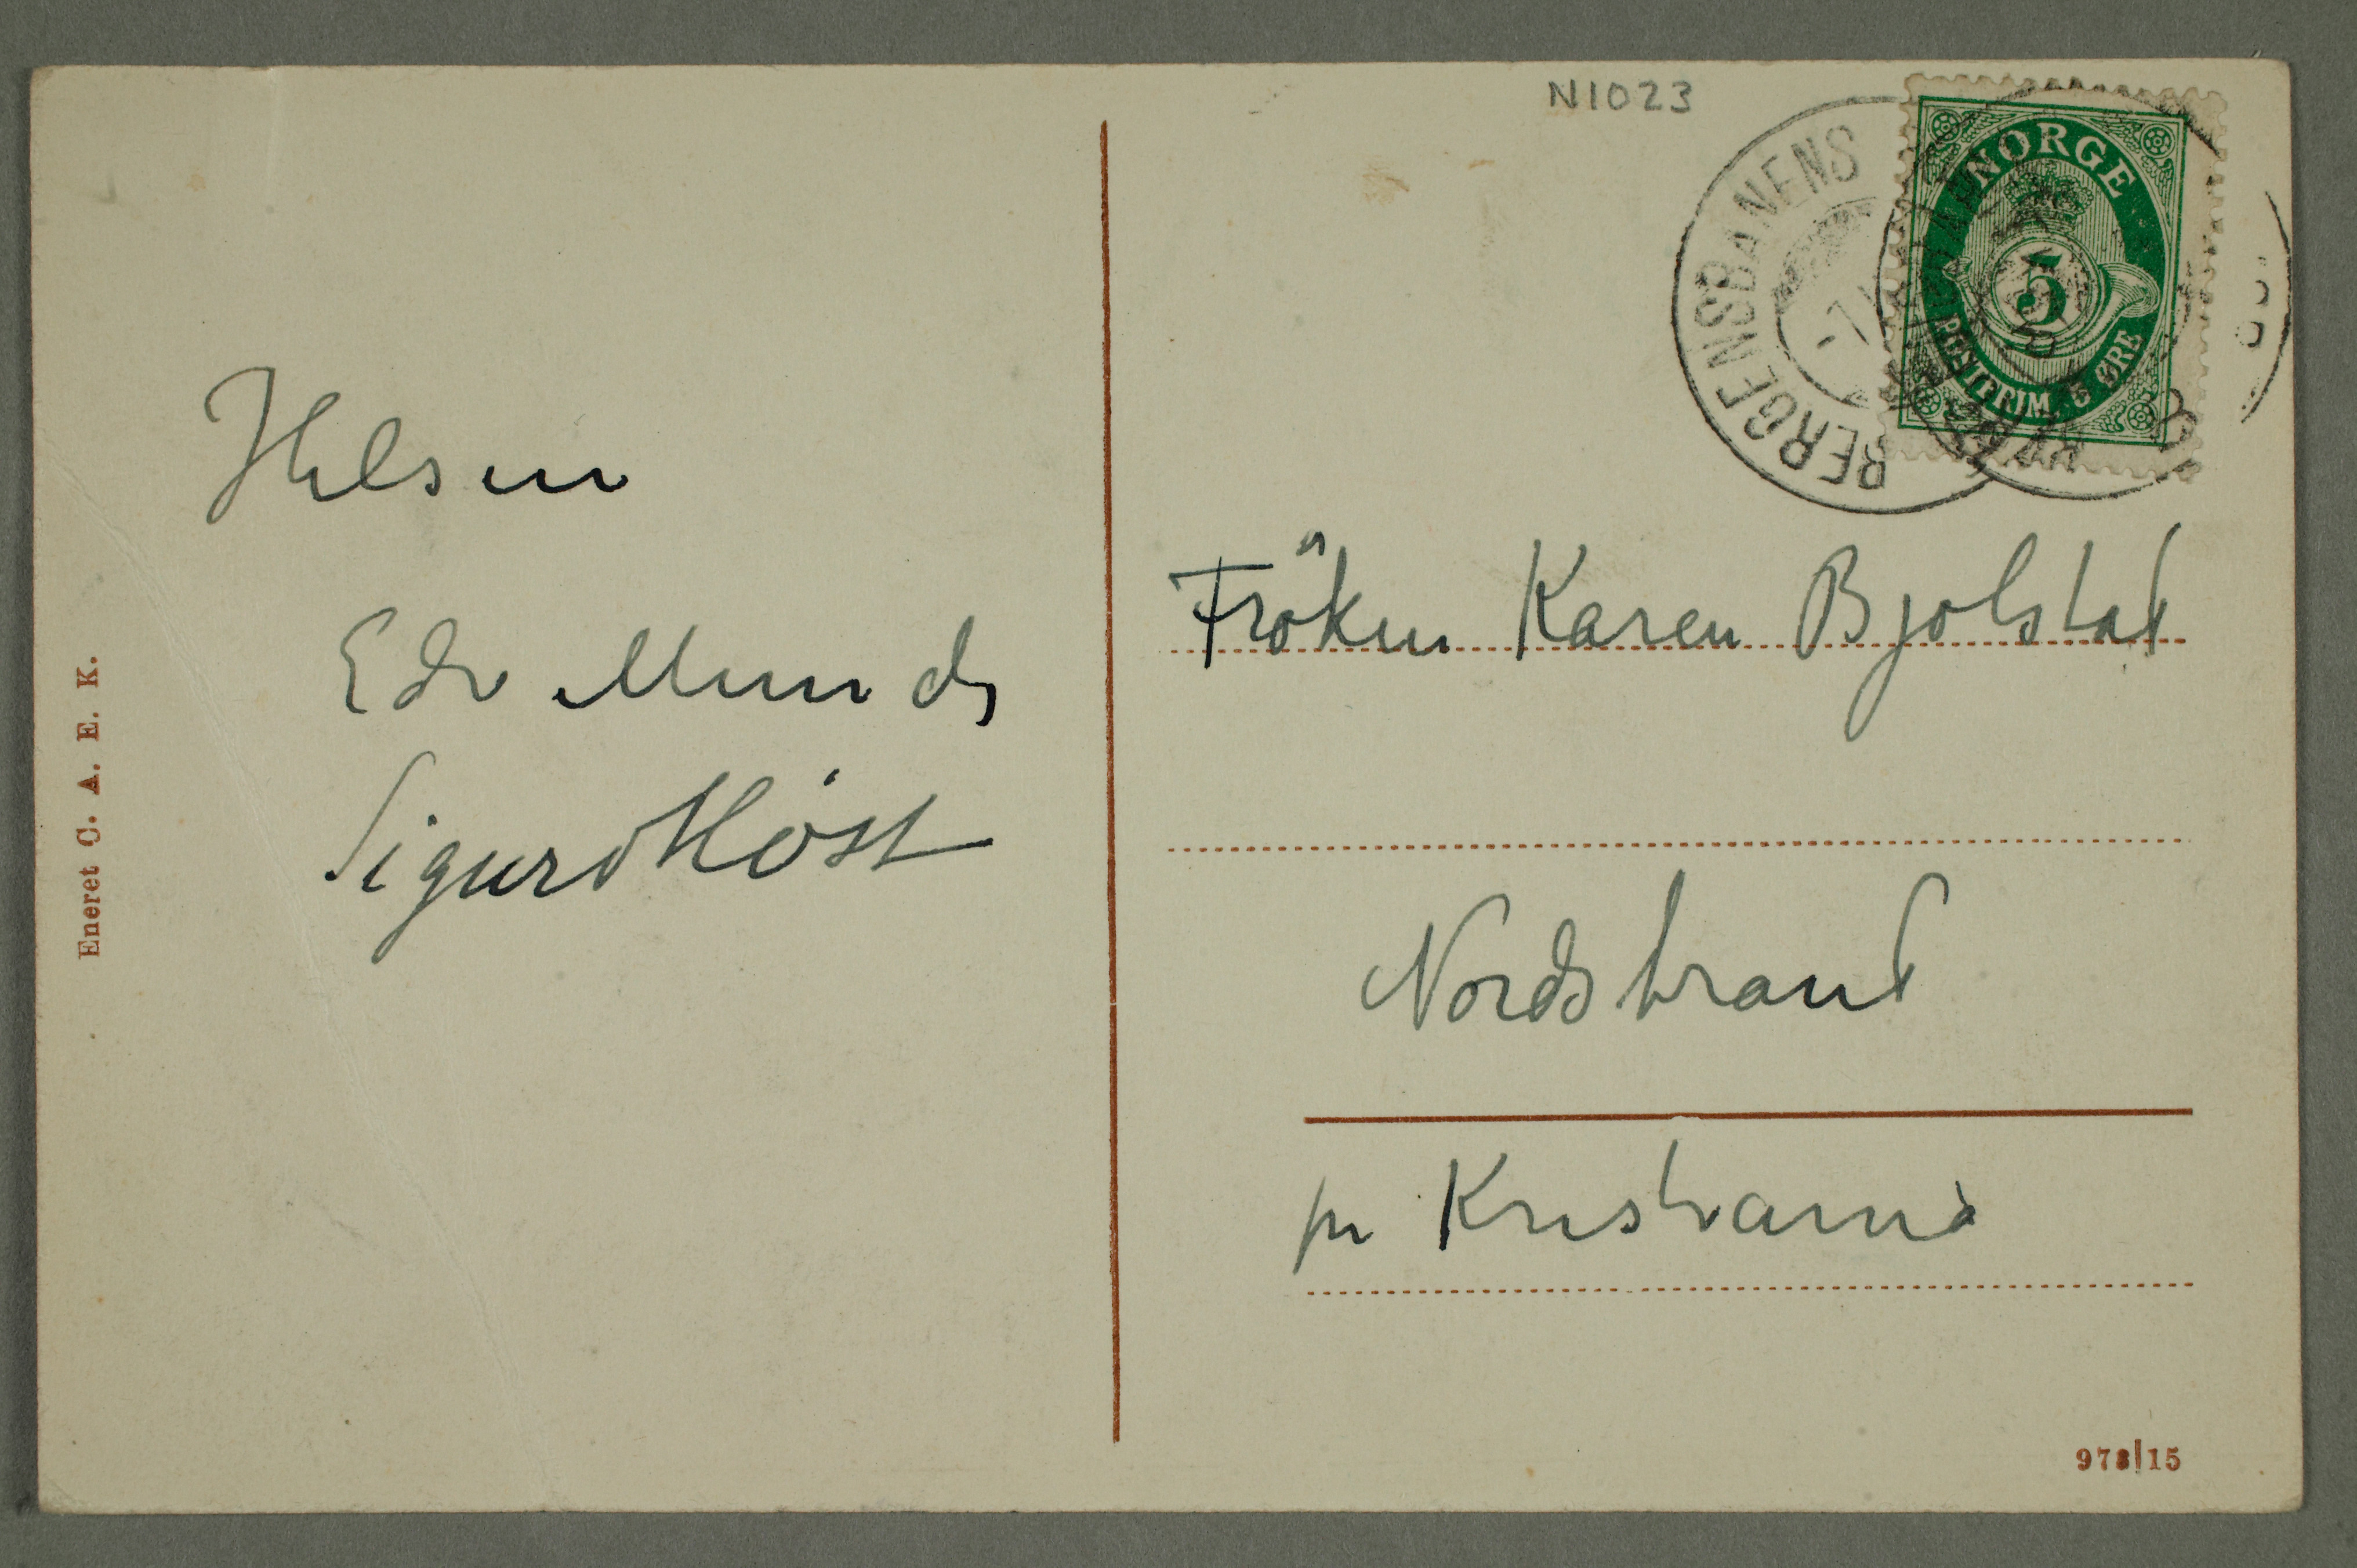 N1023
BERGENSBANENS
NORGE
5
POSTFRIM. 5 ØRE
Hilsen
Edv Munch
Sigurd Höst
Fröken Karen Bjølstad
Nordstrand
pr Kristiania
Eneret C. A. E. K.
973|15